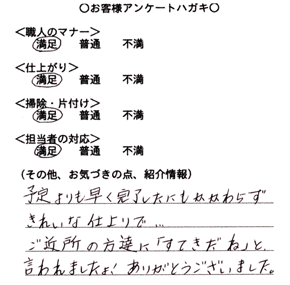 ○お客様アンケートハガキ○
＜職人のマナー＞
満足 普通 不満
＜仕上がり＞
満足 普通 不満
＜掃除・片付け＞
満足 普通 不満
＜担当者の対応＞
満足 普通 不満
（その他、お気づきの点、紹介情報）
予定よりも早く完了したにもかかわらず
きれいな仕上りで...
ご近所の方達に「すてきだね」と、
言われましたよ! ありがとうございました。